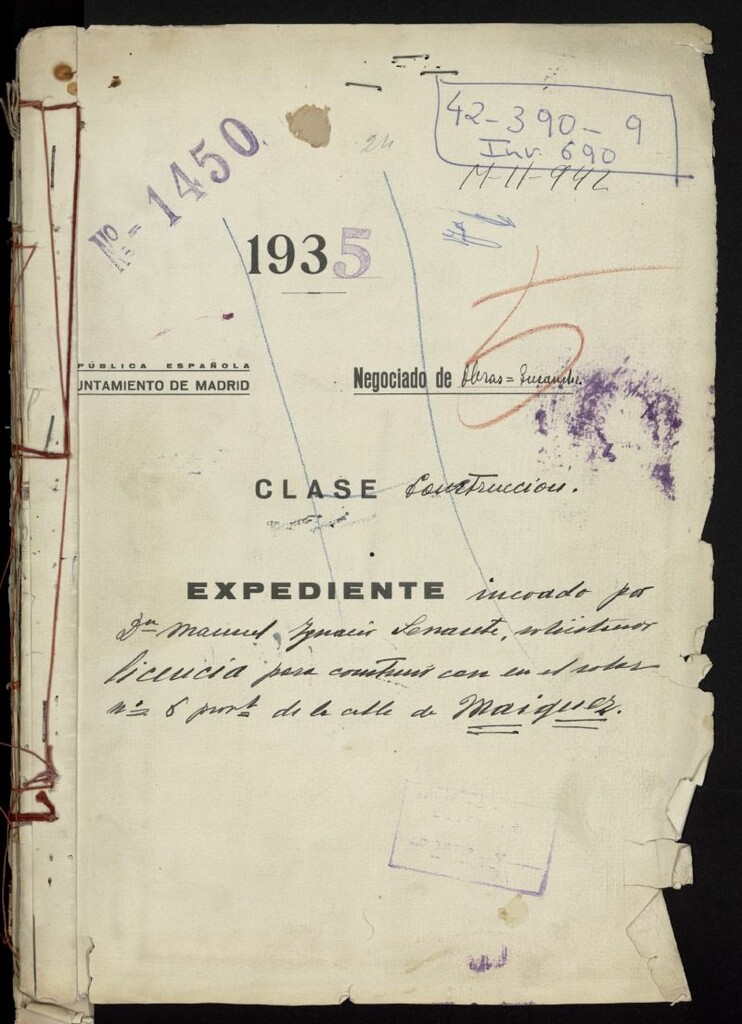 42-390-9
Inv. 690
Nº- 1450.
24
11-11-942
1935
PÚBLICA ESPAÑOLA
UNTAMIENTO DE MADRID
Negociado de Obras=
5
CLASE Construccion.
EXPEDIENTE incoado por
Dn Manuel Ygnacio Senante, solicitando
licencia para construir casa en el solar
nº 6 provl de la calle de Maiquez.